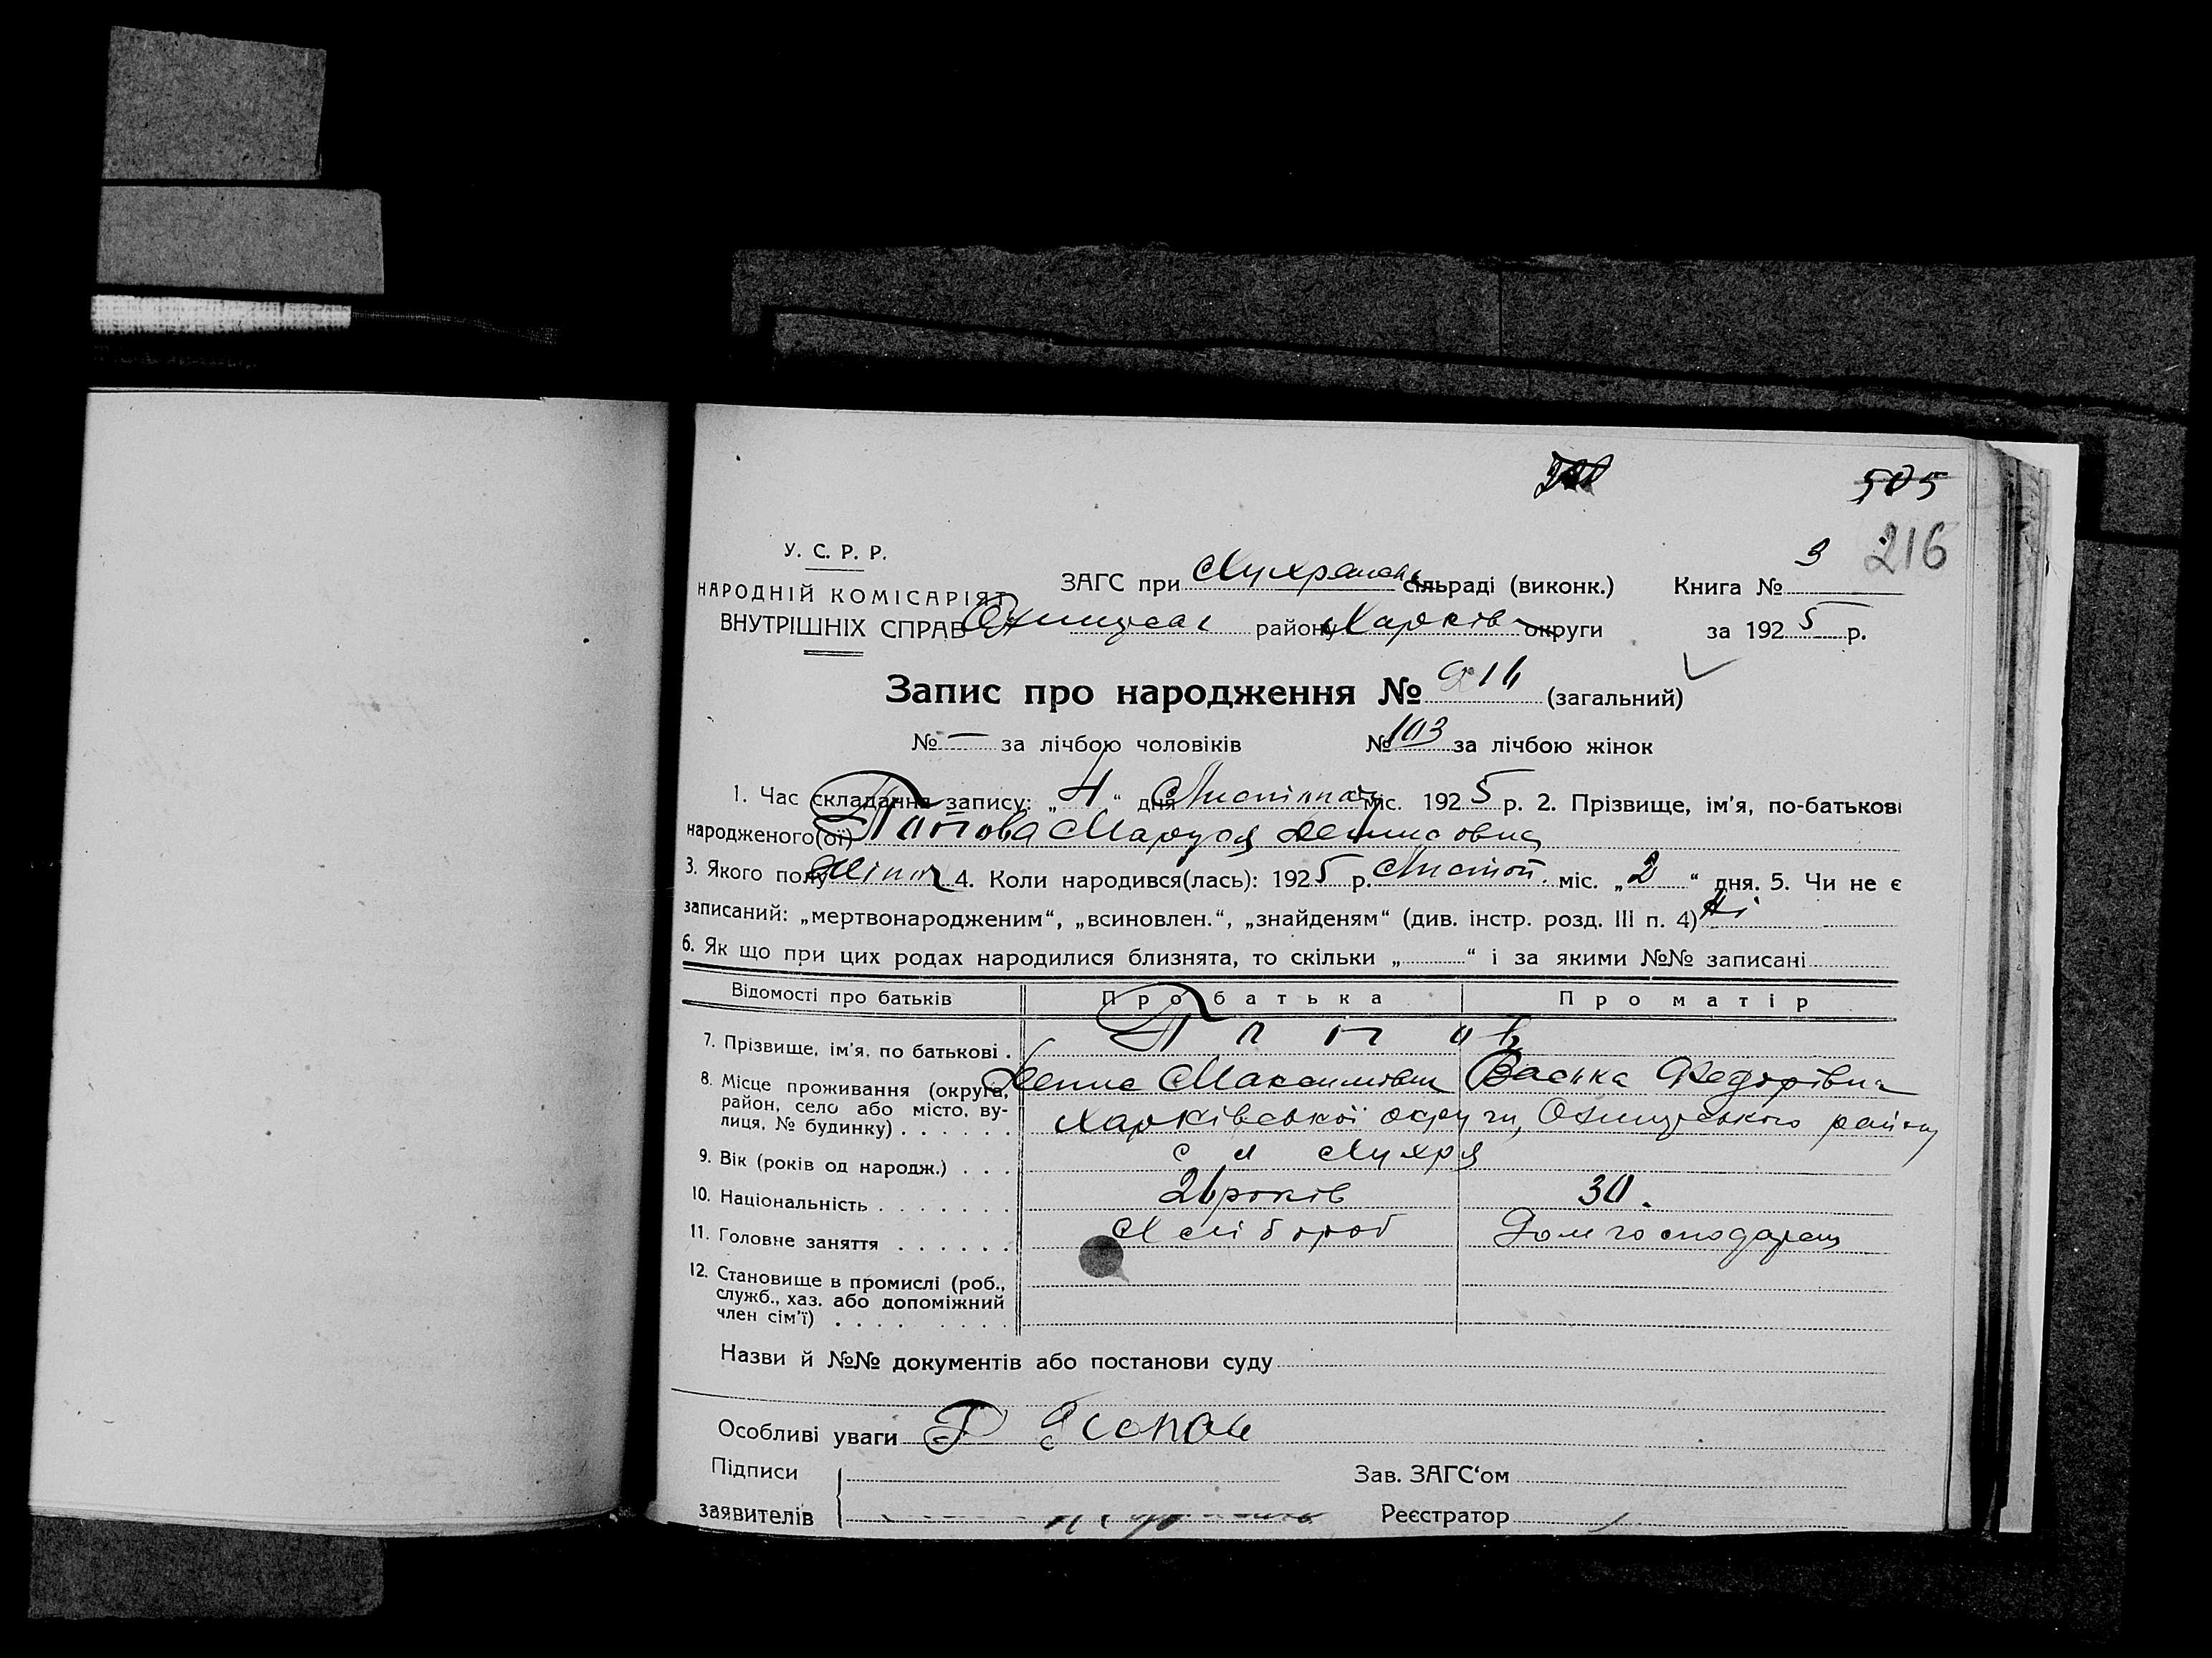 505
216
У. С. Р. Р.
НАРОДНІЙ КОМІСАРІЯТ
ВНУТРІШНІХ СПРАВ
ЗАГС при сільраді (виконк.) Книга № 3
району Харків округи за 1925 р.
Запис про народження № (загальний)
№ — за лічбою чоловіків № 103 за лічбою жінок
1. Час складання запису: „4“ дня міс. 1925 р. 2. Прізвище, ім'я, по-батькові
народженого(ої) Попова Маруся Денисовна
3. Якого полу 4. Коли народився(лась): 1925 р. Листоп. міс. „2“ дня. 5. Чи не є
записаний: „мертвонародженим“, „всиновлен.“, „знайденям“ (див. інстр. розд. III п. 4) Ні
6. Як що при цих родах народилися близнята, то скільки „ “ і за якими №№ записані
Відомості про батьків Про батька Про матір
7. Прізвище, ім'я, по батькові .
Денис Максимович Васька Федорівна
8. Місце проживання (округа, район, село або місто, вулиця, № будинку) . . . . . . Харківської округи, району
9. Вік (років од народж.) . . .
10. Національність . . . . . . . 26 років 30.
11. Головне заняття . . . . . . Хлібороб Дом господарка
12. Становище в промислі (роб.,
служб., хаз. або допоміжний
член сім'ї) . . . . . . . .
Назви й №№ документів або постанови суду
Особливі уваги
Підписи Зав. ЗАГС'ом
заявителів Реєстратор